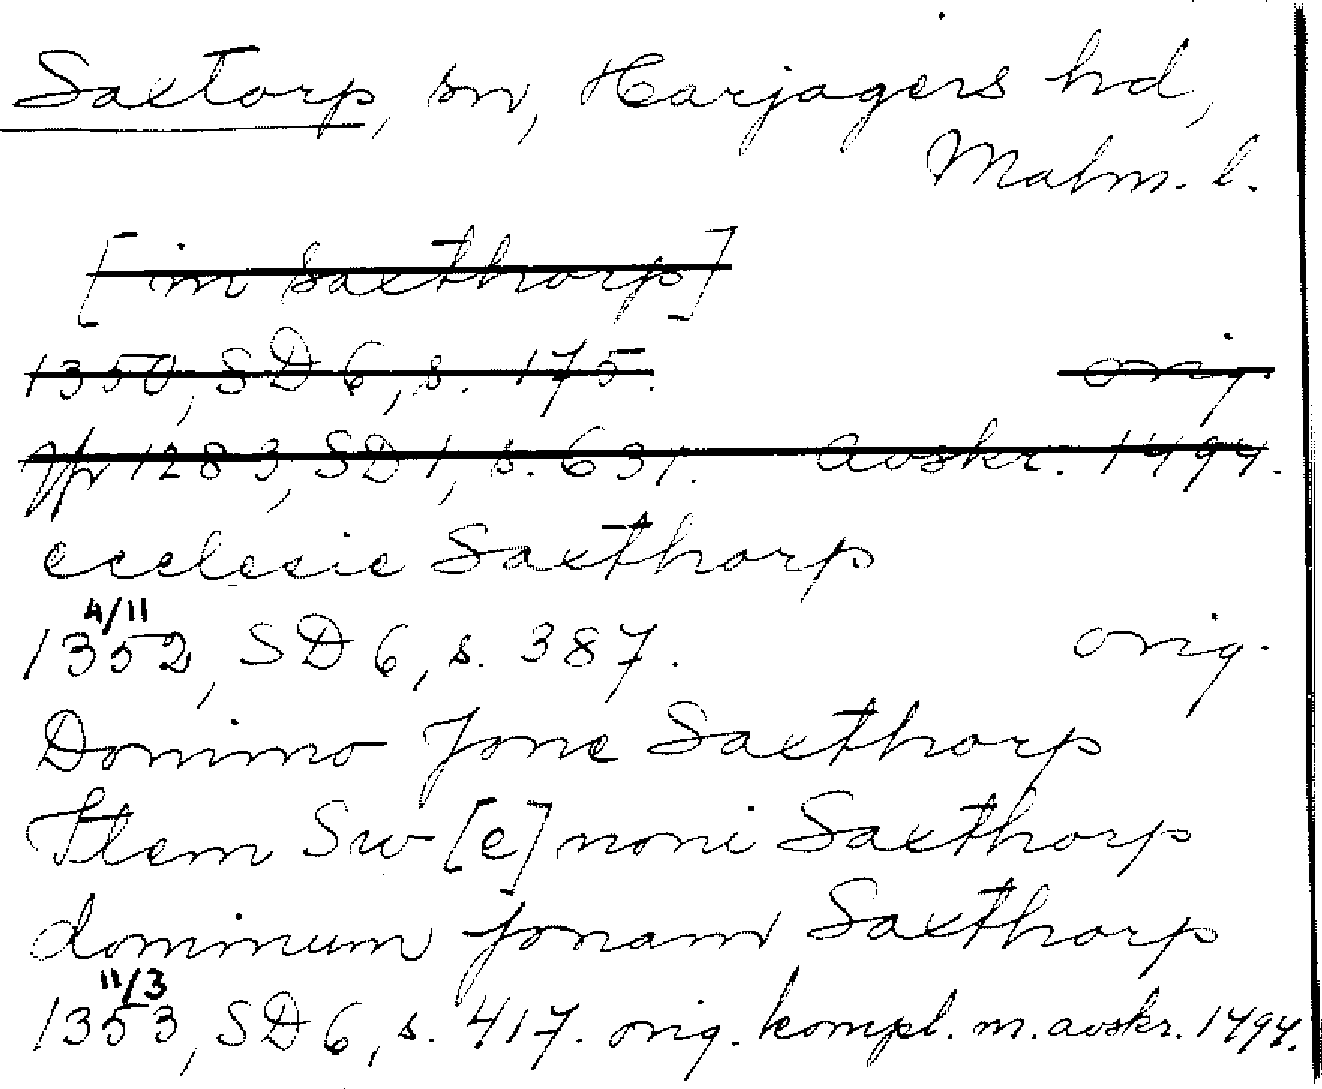 Saxtorp, sn, Harjagers hd,
Malm. l.
[in Saxthorp]
1350, SD 6, s. 175. orig.
Jfr 1283, SD 1, s. 631. avskr. 1494.
ecclesie Saxthorp
4/11
1352, SD 6, s. 387. orig.
Domino Jone Saxthorp
Item Sw[e]noni Saxthorp
dominum Jonam Saxthorp
11/3
1353, SD 6, s. 417. orig. kompl. m. avskr. 1494.